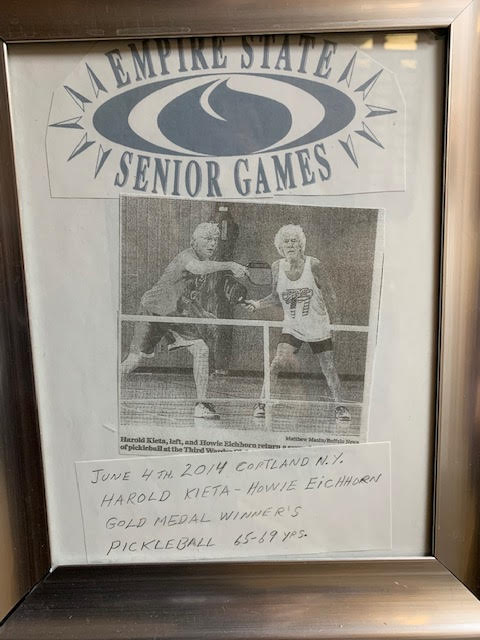 EMPIRE STATE
SENIOR GAMES
Matthew Masin/Buffalo News
Harold Kieta, left, and Howie Eichhorn return a
of pickleball at the Third
JUNE 4TH. 2014 CORTLAND N.Y.
HAROLD KIETA - HOWIE EICHHORN
GOLD MEDAL WINNER'S
PICKLEBALL 65-69 YRS.